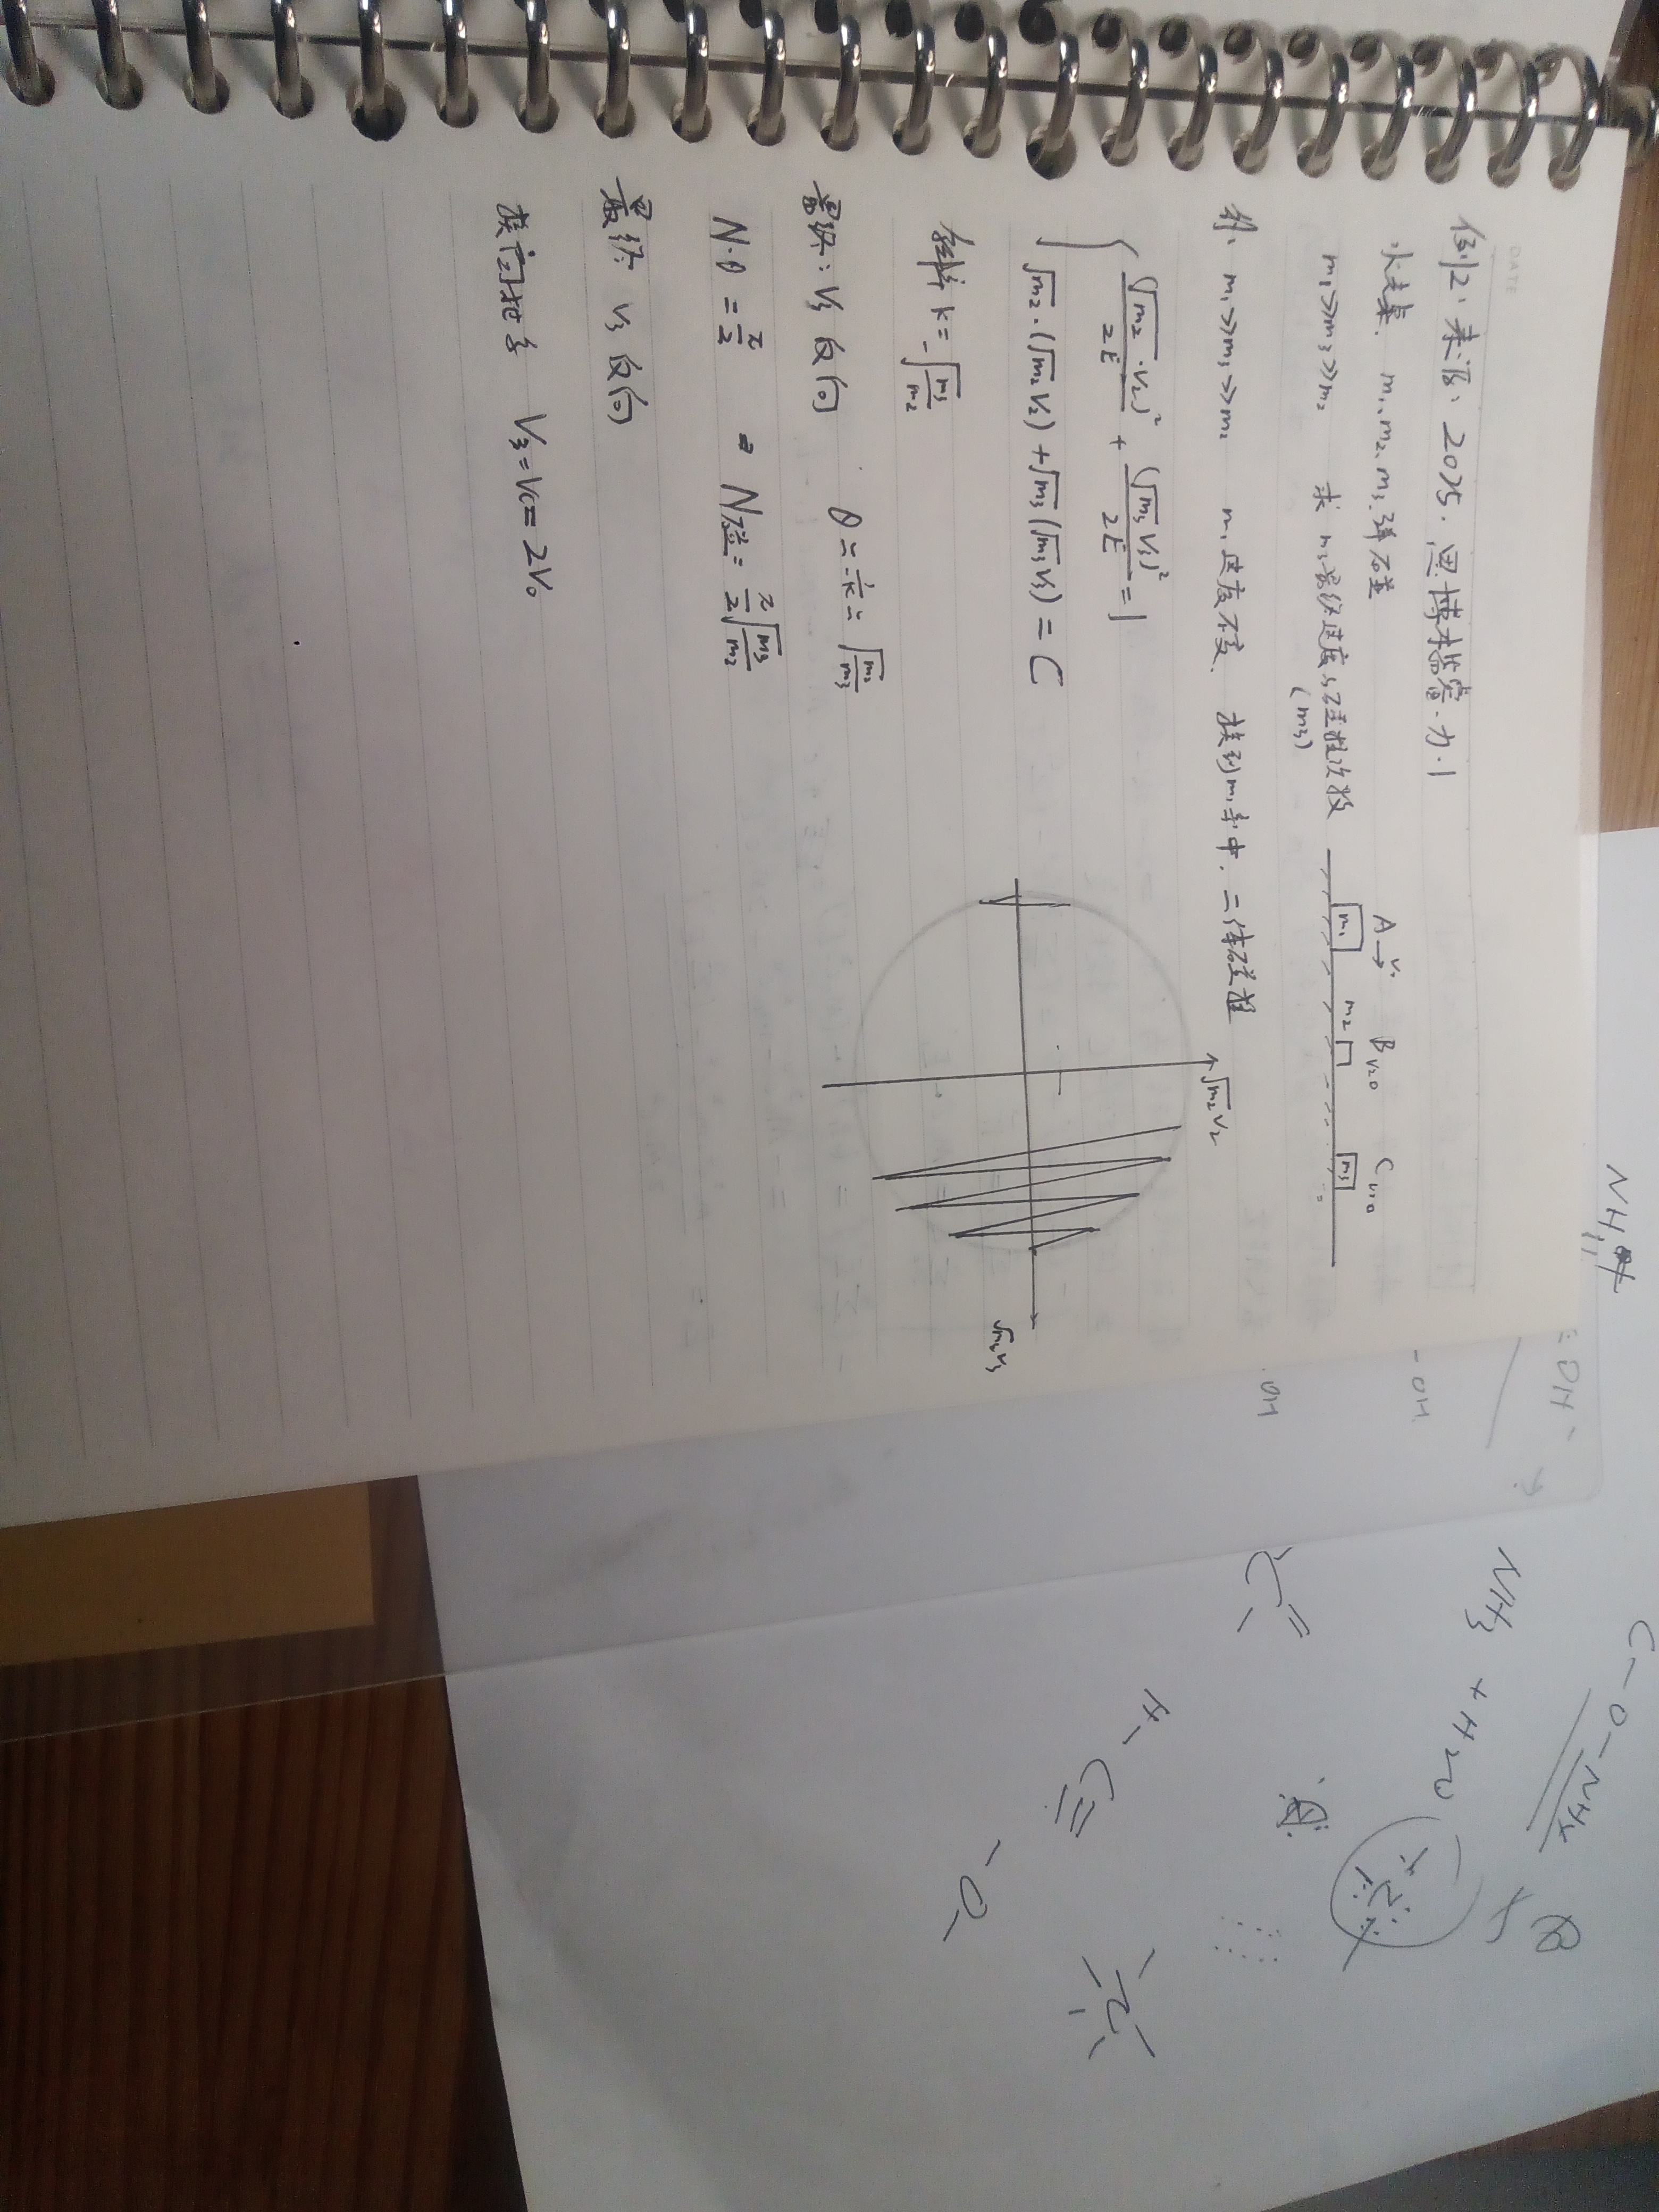 DATE
例2. 来源: 2025. 思博未监赛.力.1
水桌. m₁、m₂、m₃弹碰
m₁>>m₃>>m₂ 求 m₃最终速度与碰撞次数
(m₃)
A →v₀ B v=0 C v=0
m₁ m₂ m₃
m₁>>m₃>>m₂ m₁速度不变. 换到m₁系中. 二体碰撞
{ (√m₂·v₂)²/2E + (√m₃v₃)²/2E = 1
√m₂·(√m₂v₂)+√m₃(√m₃v₃) = C
斜率 k=-√(m₃/m₂)
√m₂v₂
√m₃v₃
最终: v₃反向 θ≃1/-k≃√(m₂/m₃)
N·θ = π/2 ⇒ N碰 = π/2 √(m₃/m₂)
最终 v₃反向
换回地系 v₃=vc=2v₀
NH₄
OH⁻
-OH
OH
NH₃ + H₂O
C-O-NH₄
H-C≡
-O-